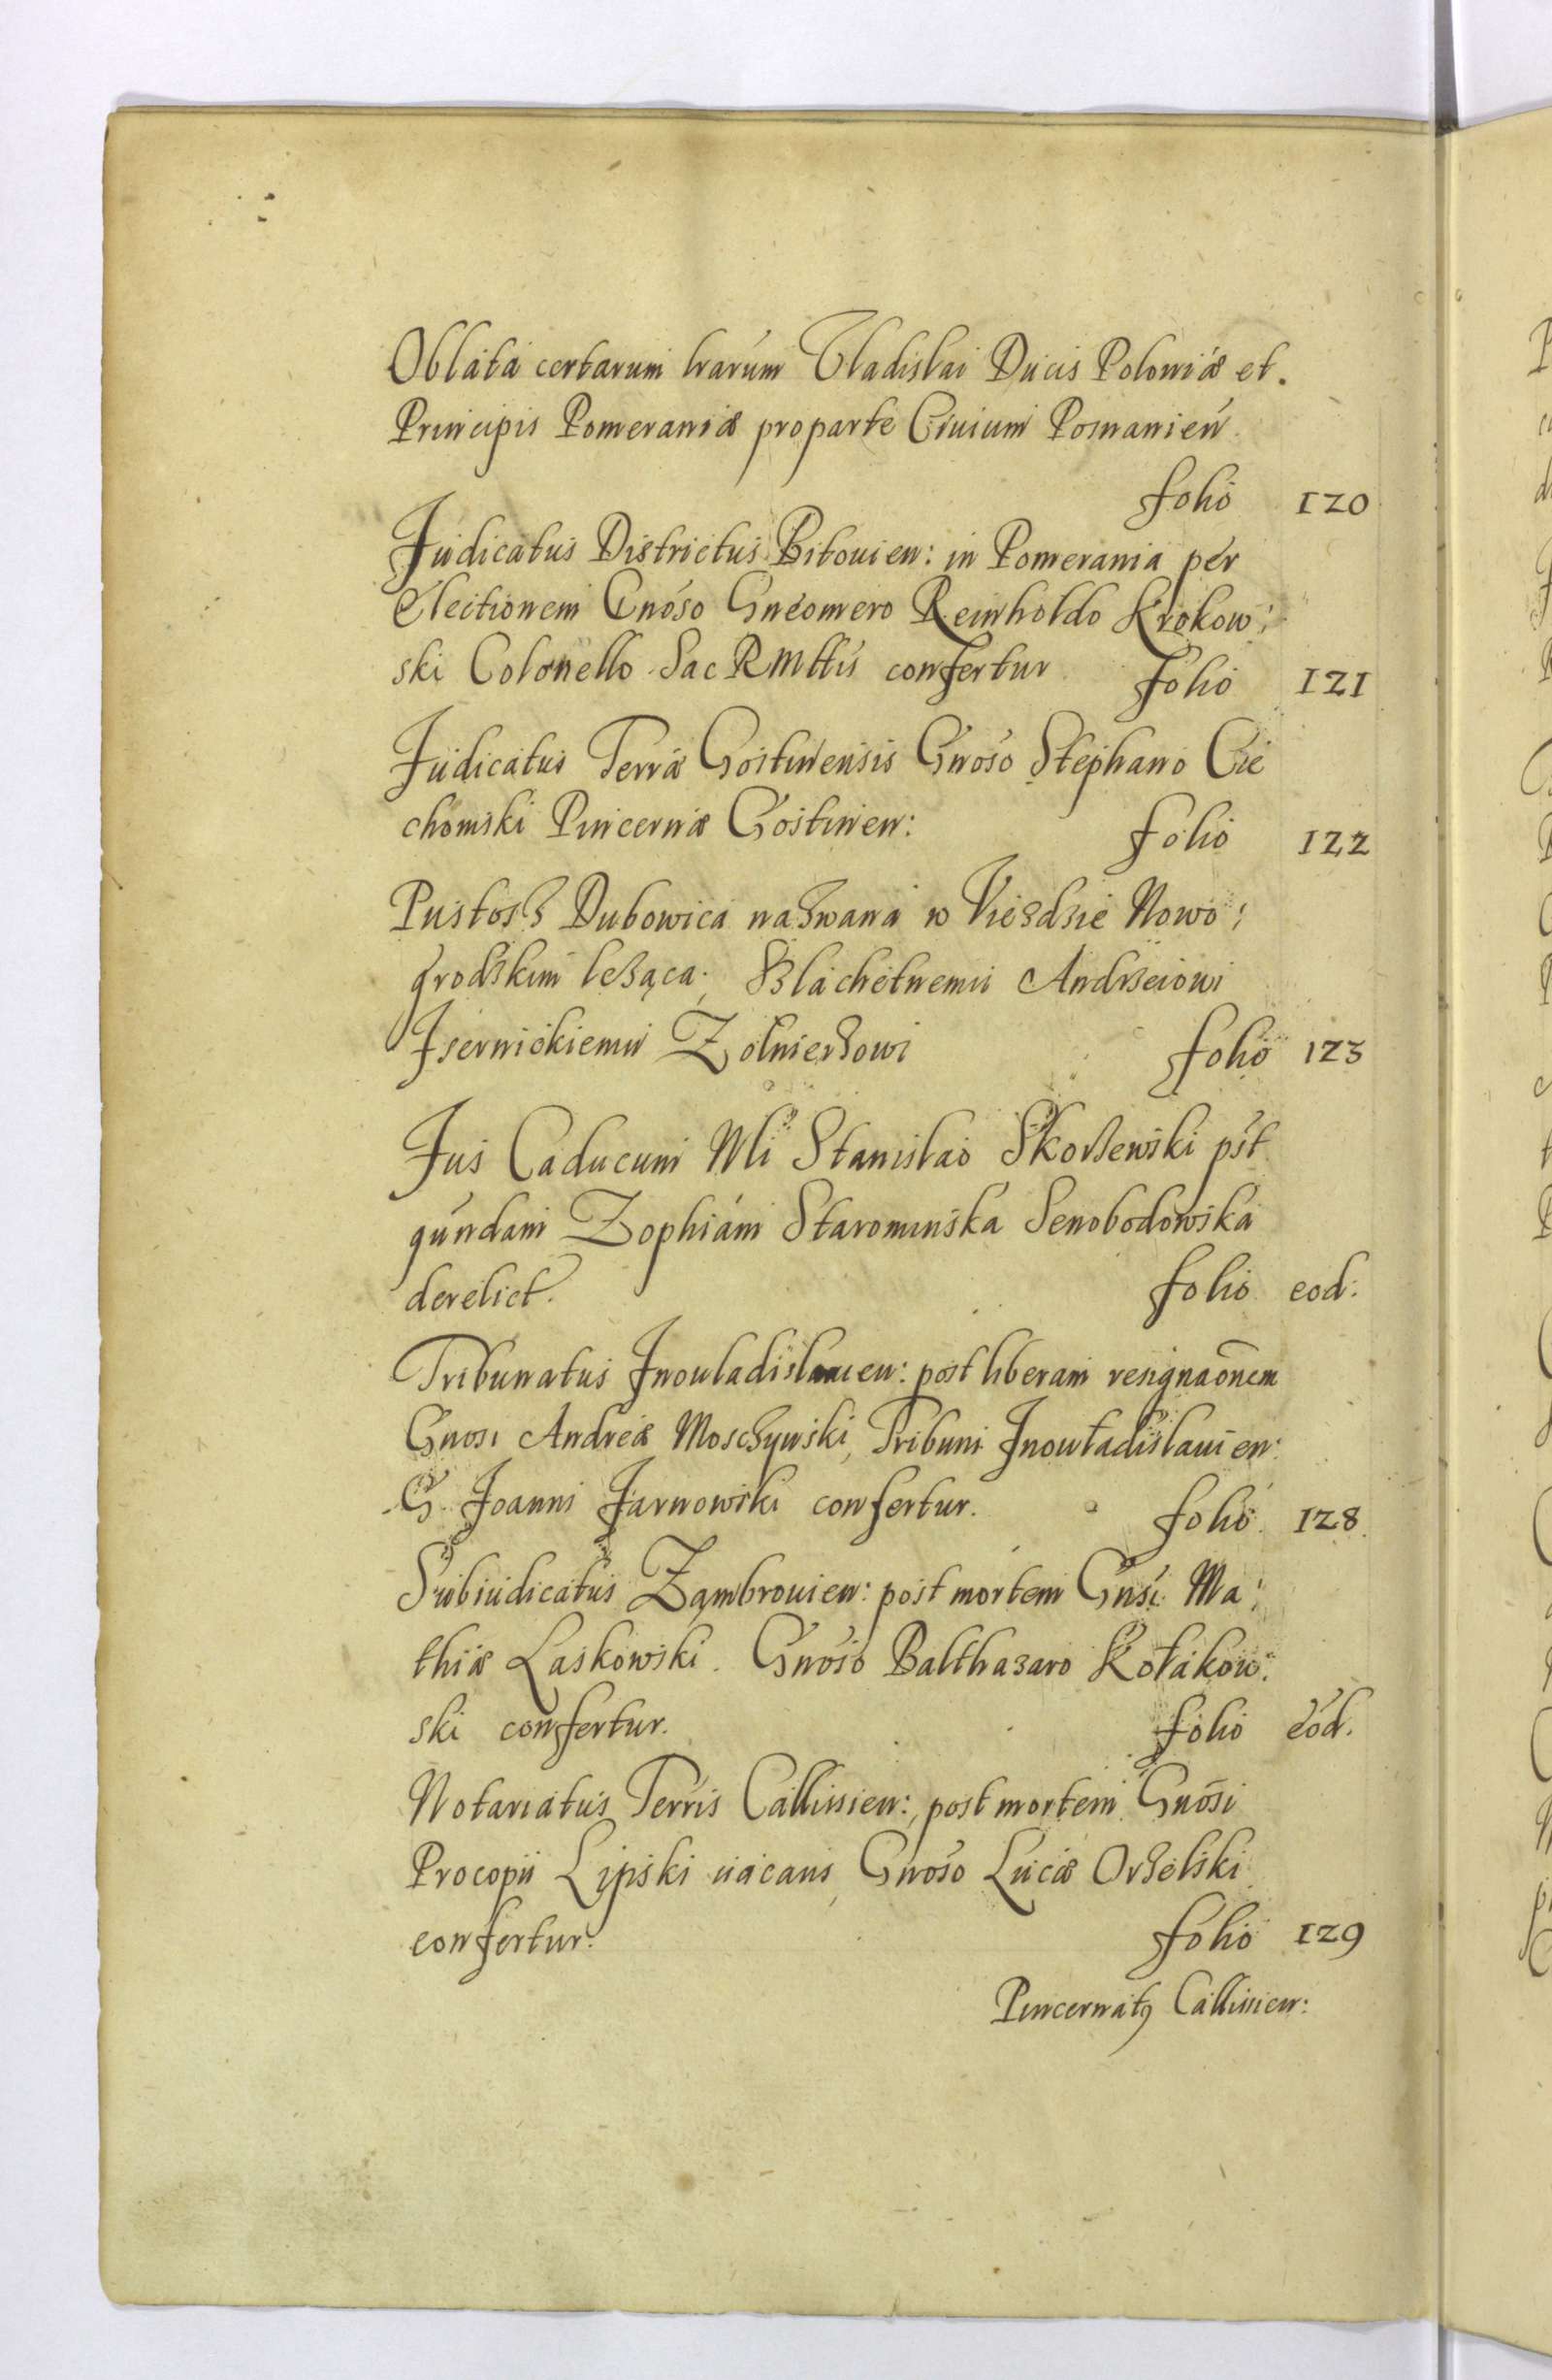 Oblata certarum lrarum Vladislai Ducis Poloniæ et.
Principis Pomeraniæ pro parte Ciuium Posnanien
folio 120
Judicatus Districtus Bitouien: in Pomerania per
Electionem Gnoso Gneomero Reinholdo Krokow:
ski Colonello Sac R Mttis confertur folio 121
Judicatus Terræ Gostinensis Gnoso Stephano Cie
chomski Pincernæ Gostinen: folio 122
Pustosz Dubowica nazwana w Viezdzie Nowo:
grodzkim leząca. Szlachetnemu Andrzeiowi
Jzernickiemu Zolnierzowi folio 123
Jus Caducum Mli Stanislao Skorzewski pst
qundam Zophiam Starominska Senobodowska
derelict. folio eod:
Tribunatus Jnouladislauien: post liberam resignaonem
Gnosi Andreæ Moszczynski, Tribuni Jnowladislauien:
G. Joanni Jarnowski confertur. folio 128.
Subiudicatus Zambrouien: post mortem Gnsi Ma:
thiæ Laskowski. Gnoso Balthazaro Kołakow:
ski confertur. folio eod.
Notariatus Terris Callissien: post mortem Gnosi
Procopii Lipski uacans, Gnoso Lucæ Orzelski
confertur. folio 129
Pincernatq Callissien: